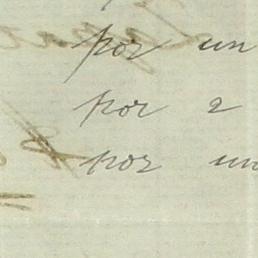 por un
por 2
por un